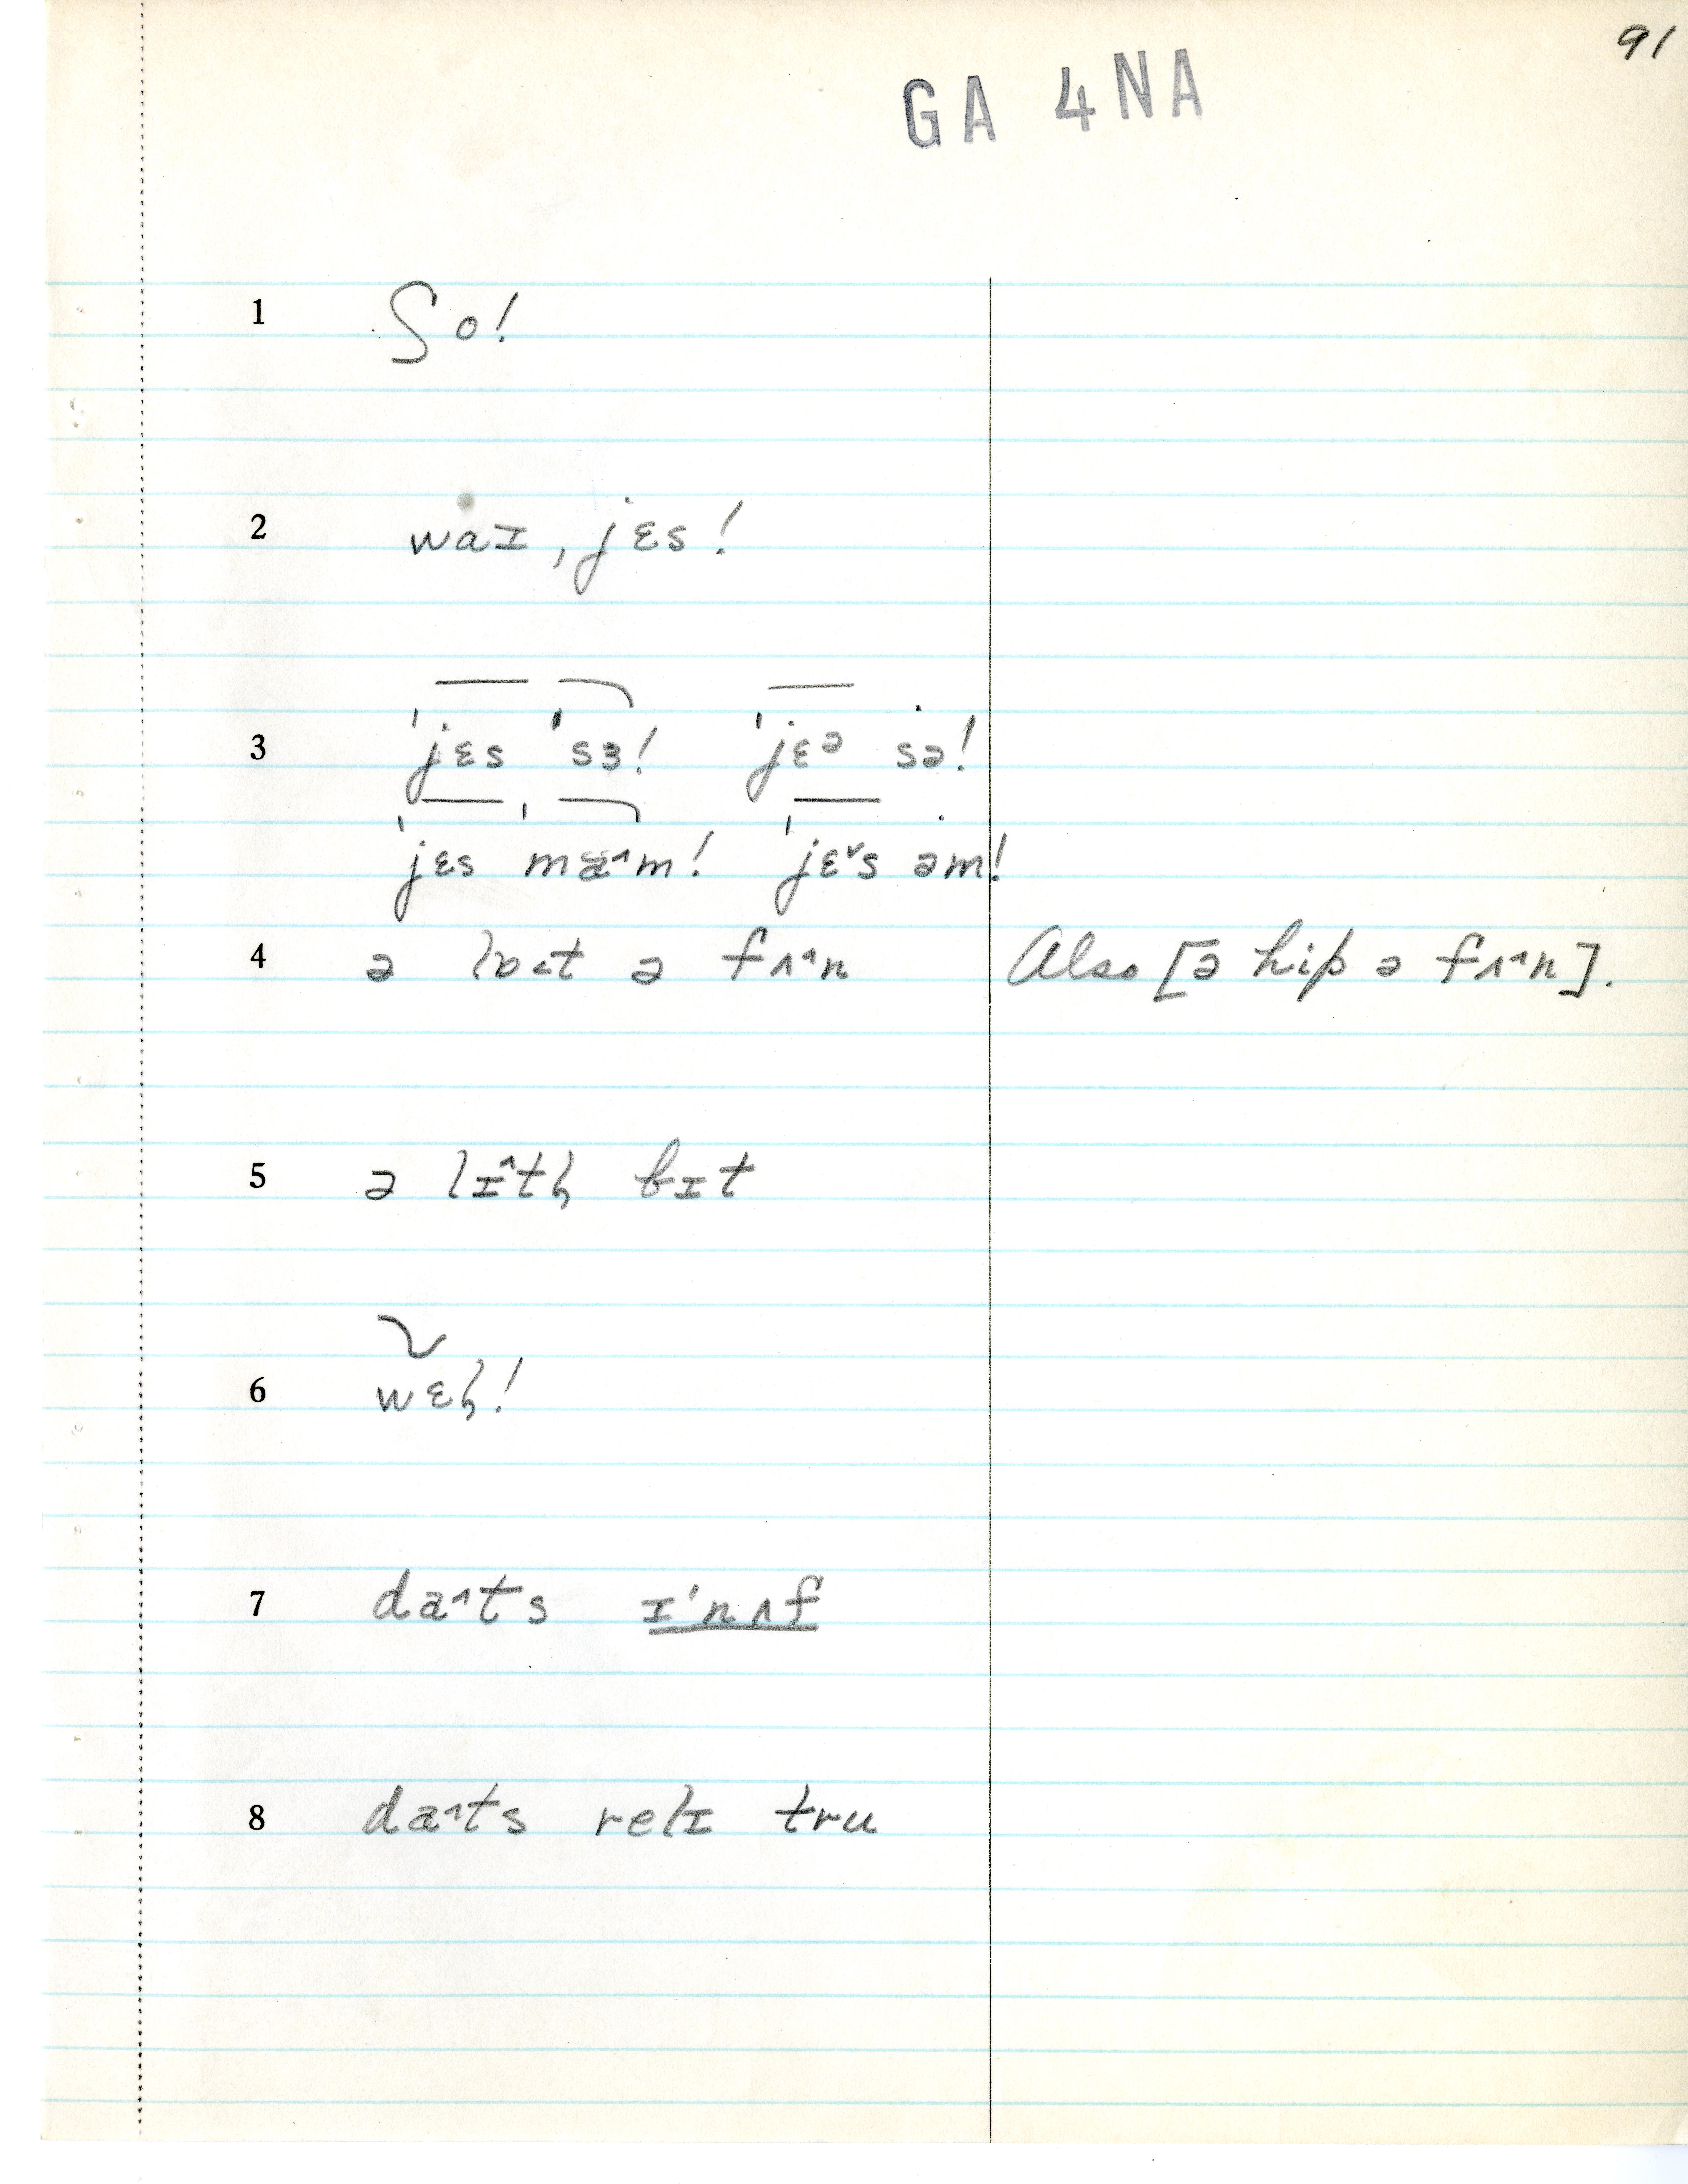 91
GA 4NA
1 ʃo!
2 waɪ, jɛs!
3 ˈjɛs ˈsɜ! ˈjɛᵊ sə!
ˈjɛs ˈmæ̃˄m! ˈjɛ˅s əm!
4 ə lɒ˂t ə fʌ˄n Also [ə hip ə fʌ˄n].
5 ə lɪ˄tl̩ bɪt
6 wɛl̩!
7 da˄ts ɪˈnʌf
8 da˄ts relɪ tru